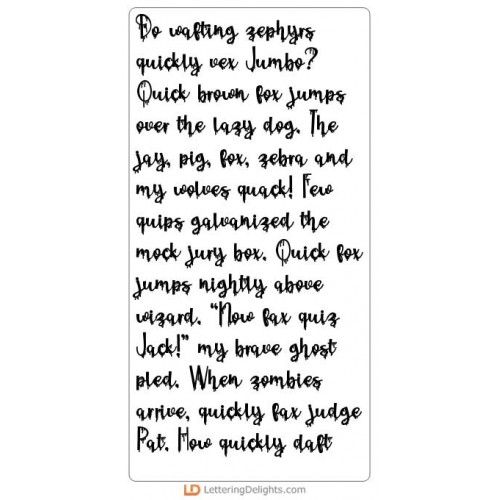 Do wafting zephyrs
quickly vex Jumbo?
Quick brown fox jumps
over the lazy dog. The
jay, pig, fox, zebra and
my wolves quack! Few
quips galvanized the
mock jury box. Quick fox
jumps nightly above
wizard. "Now fax quiz
Jack!" my brave ghost
pled. When zombies
arrive, quickly fax judge
Pat. How quickly daft
LD LetteringDelights.com